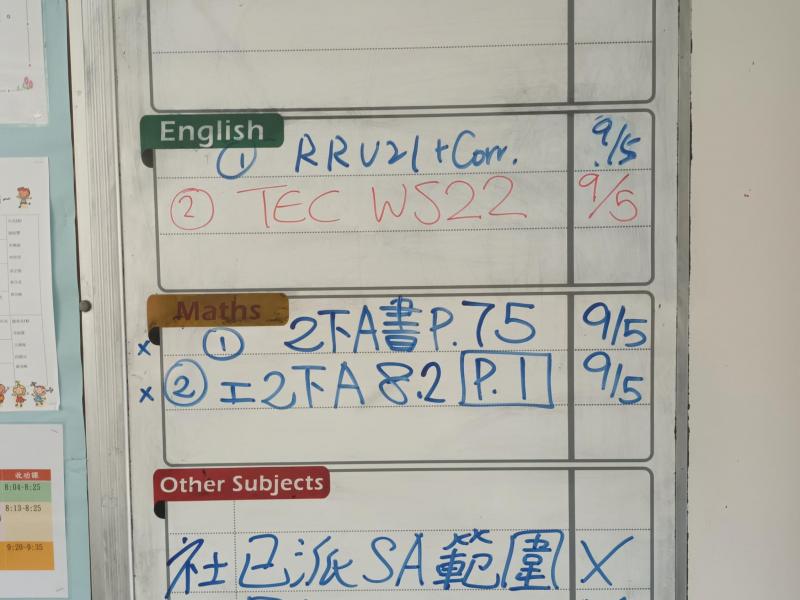 English
① RRU21+Corr. 9/5
② TEC WS22 9/5
Maths
x ① 2下A書 P.75 9/5
x ② 工2下A 8.2 P.1 9/5
Other Subjects
社 已派SA範圍 X
收功課
8:04-8:25
8:13-8:25
9:20-9:35